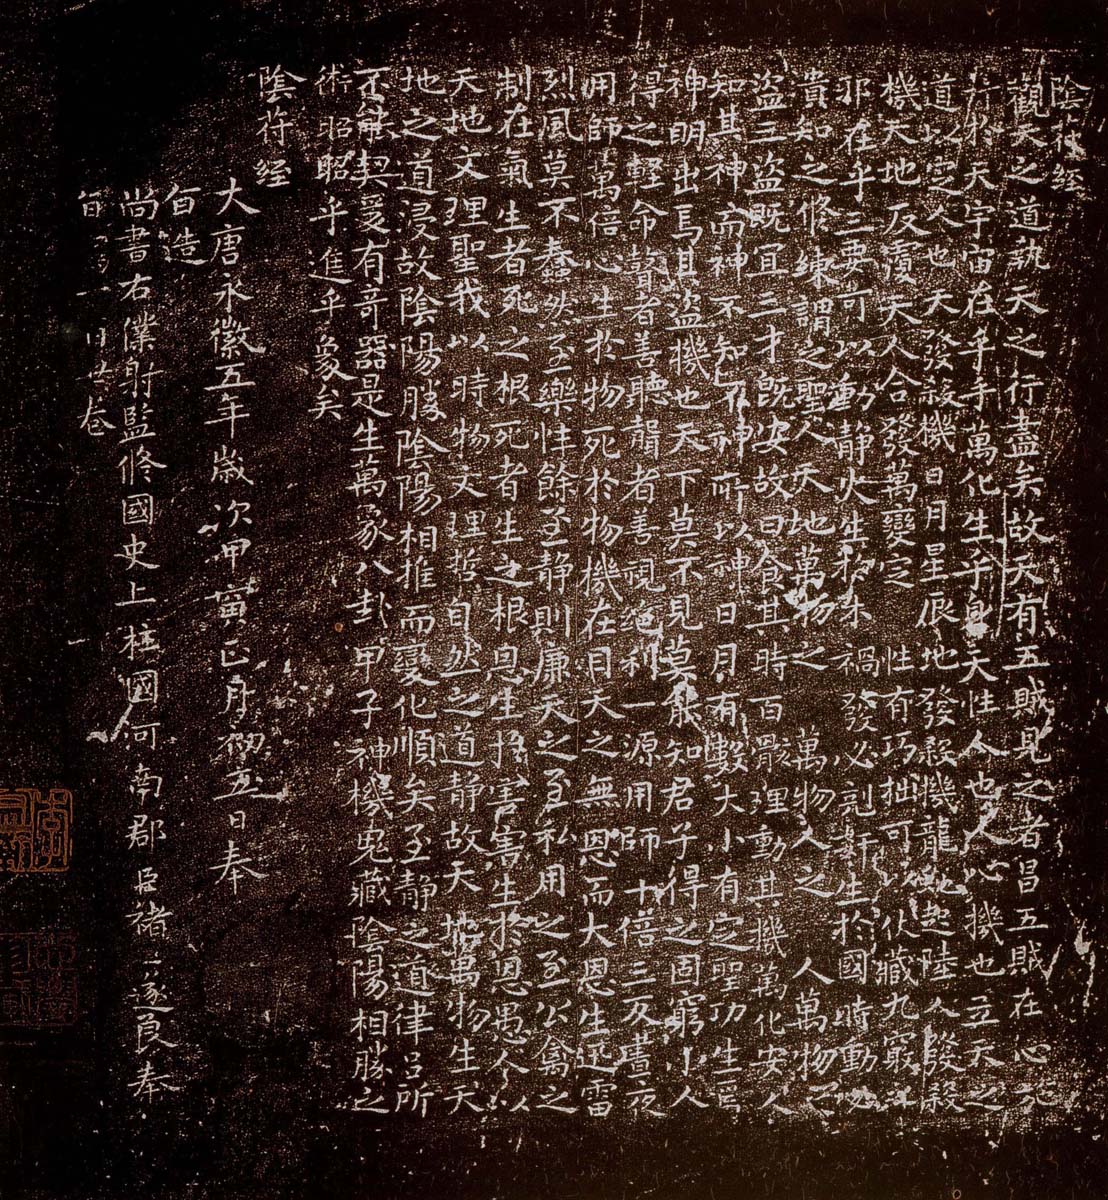 陰符經
觀天之道執天之行盡矣故天有五賊見之者昌五賊在心施
行於天宇宙在乎手萬化生乎身天性人也人心機也立天之
道以定人也天發殺機日月星辰地發殺機龍蛇起陸人發殺
機天地反覆天人合發萬變定性有巧拙可以伏藏九竅之
邪在乎三要可以動靜火生於木禍發必剋姧生於國時動必
潰知之修練謂之聖人天地萬物之萬物人之人萬物之
盜三盜既宜三才旣安故曰食其時百骸理動其機萬化安人
知其神而神不知不神所以神日月有數大小有定聖功生焉
神明出焉其盜機也天下莫不見莫能知君子得之固窮小人
得之輕命瞽者善聽聾者善視絕利一源用師十倍三反晝夜
用師萬倍心生於物死於物機在目天之無恩而大恩生迅雷
烈風莫不蠢然至樂性餘至靜則廉天之至私用之至公禽之
制在氣生者死之根死者生之根恩生於害害生於恩愚人以
天地文理聖我以時物文理哲自然之道靜故天地萬物生天
地之道浸故陰陽勝陰陽相推而變化順矣至靜之道律呂所
不能契爰有奇器是生萬象八卦甲子神機鬼藏陰陽相勝之
術昭昭乎進乎象矣
陰符經
大唐永徽五年歲次甲寅正月初五日奉
旨造
尚書右僕射監修國史上柱國河南郡臣褚遂良奉
旨